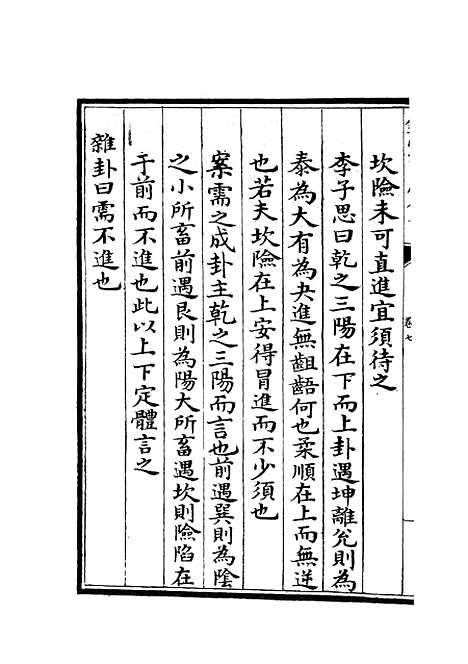 坎險未可直進宜須待之
李子思曰乾之三陽在下而上卦遇坤離兊則為
泰為大有為夬進無齟齬何也柔順在上而無逆
也若夫坎險在上安得冒進而不少須也
案需之成卦主乾之三陽而言也前遇巽則為隂
之小所畜前遇艮則為陽大所畜遇坎則險陷在
于前而不進也此以上下定體言之
雜卦曰需不進也